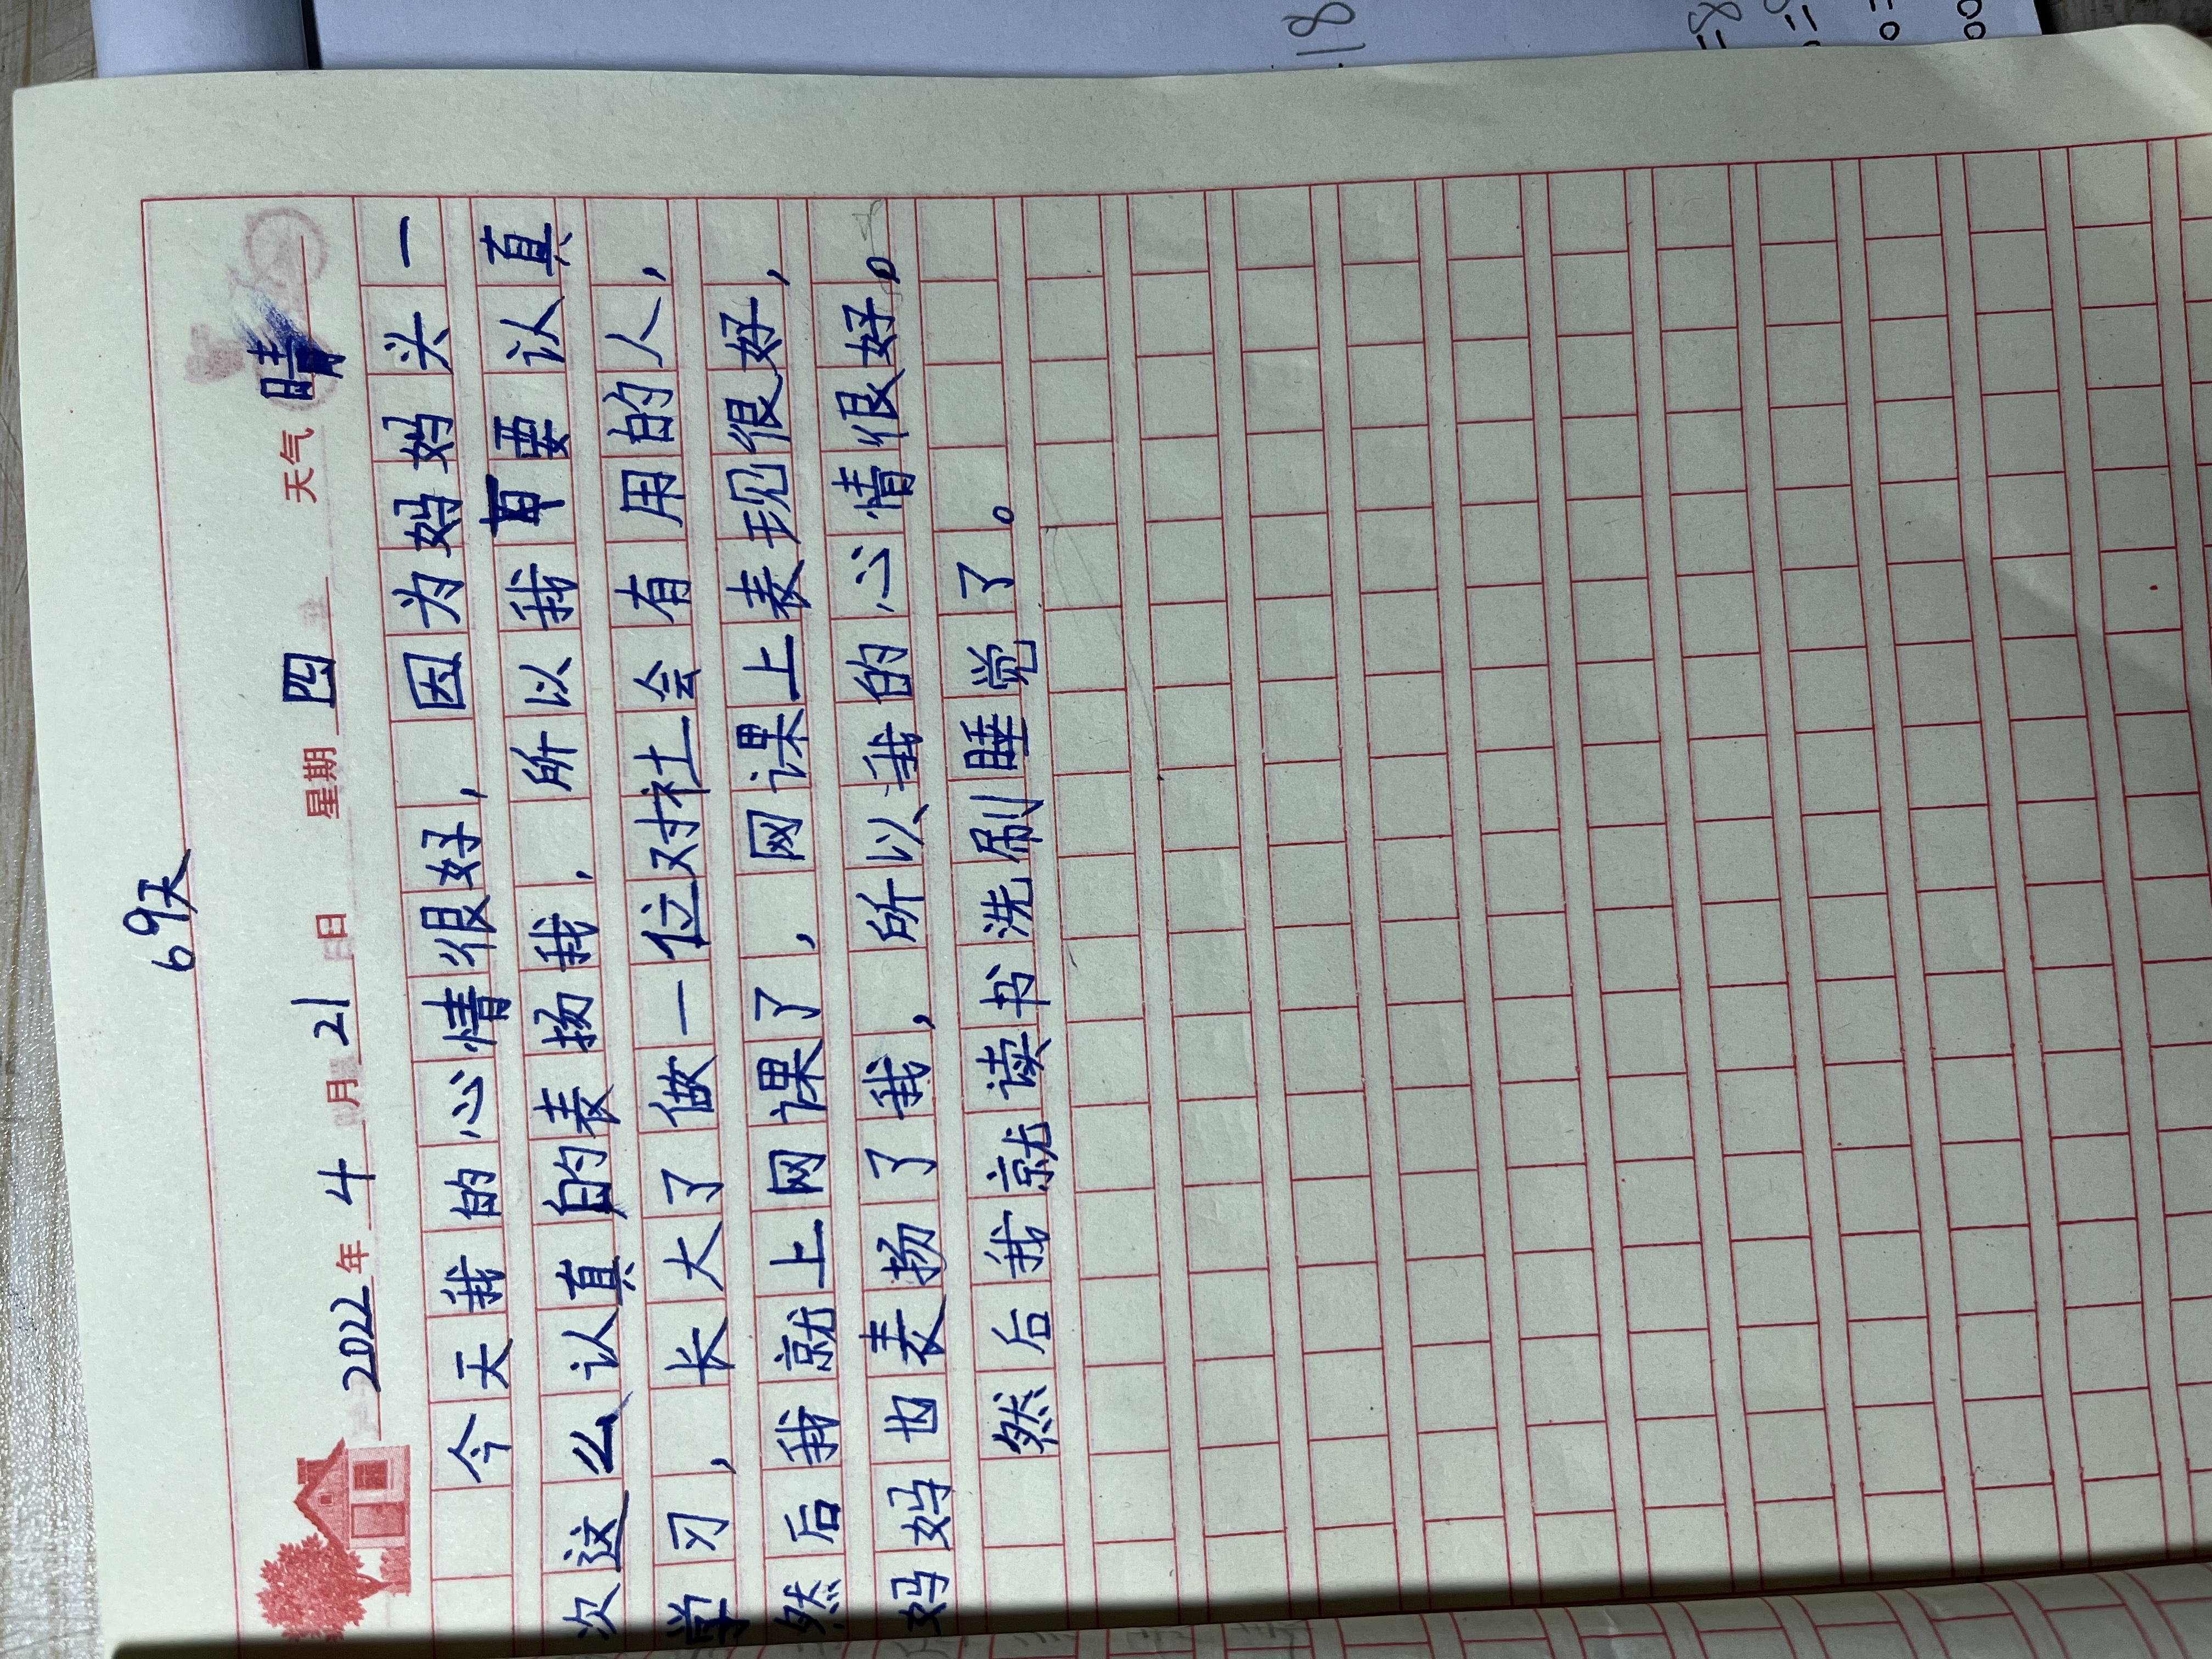 69天
2022年 4月 21日 星期四 天气 晴
今天我的心情很好,因为妈妈头一
次这么认真的表扬我,所以我要认真
学习,长大了做一位对社会有用的人,
然后我就上网课了,网课上表现很好,
妈妈也表扬了我,所以我的心情很好。
然后我就读书洗刷睡觉了。
18